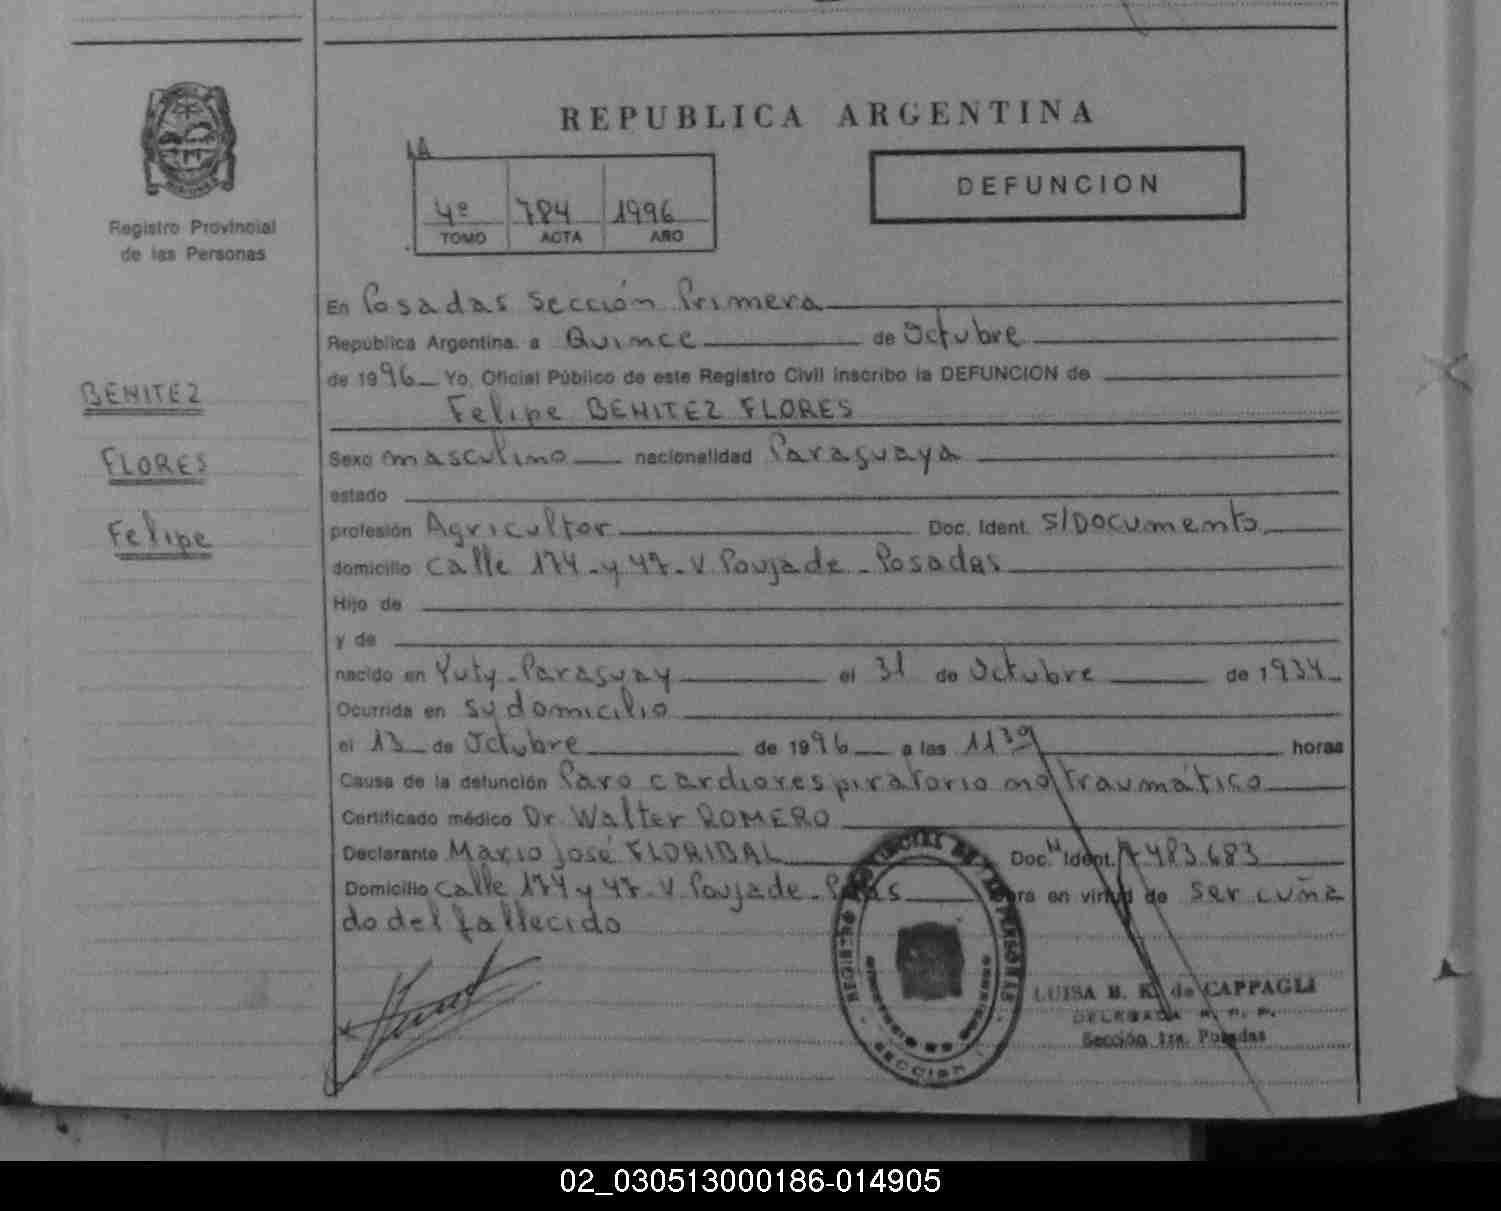 REPUBLICA ARGENTINA
LA
4º 784 1996
TOMO ACTA AÑO
DEFUNCION
Registro Provincial
de las Personas
BENITEZ
FLORES
Felipe
En Posadas Sección Primera
República Argentina. a Quince de Octubre
de 1996 Yo, Oficial Público de este Registro Civil inscribo la DEFUNCION de
Felipe BENITEZ FLORES
Sexo masculino nacionalidad Paraguaya
estado
profesión Agricultor Doc. Ident. S/Documento
domicilio calle 174 y 47 - V. Poujade - Posadas
Hijo de
y de
nacido en Yuty - Paraguay el 31 de Octubre de 1934
Ocurrida en su domicilio
el 13 de Octubre de 1996 a las 11 30 horas
Causa de la defunción Paro cardiorespiratorio no traumático
Certificado médico Dr. Walter ROMERO
Declarante Mario José FLORIBAL Doc. Ident. 483.683
Domicilio calle 174 y 47 - V. Poujade - en virtud de ser cuña
do del fallecido
LUISA B. K. de CAPPAGLI
DELEGADA R. P. P.
Sección 1ra. Posadas
02_030513000186-014905